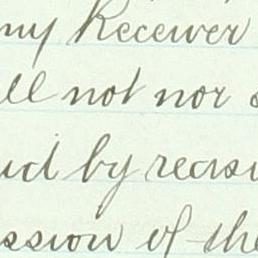 my Receiver
all not nor s
uid by reaso
ssion of the